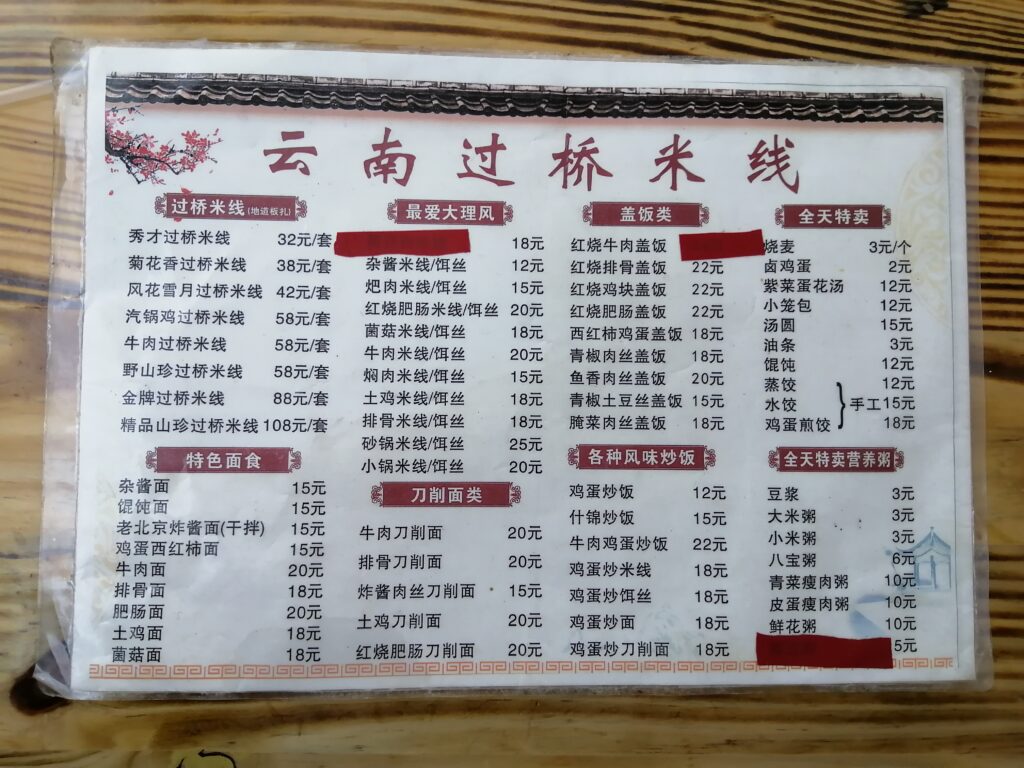 云南过桥米线
过桥米线(地道板扎)
秀才过桥米线 32元/套
菊花香过桥米线 38元/套
风花雪月过桥米线 42元/套
汽锅鸡过桥米线 58元/套
牛肉过桥米线 58元/套
野山珍过桥米线 58元/套
金牌过桥米线 88元/套
精品山珍过桥米线 108元/套
特色面食
杂酱面 15元
馄饨面 15元
老北京炸酱面(干拌) 15元
鸡蛋西红柿面 15元
牛肉面 20元
排骨面 18元
肥肠面 20元
土鸡面 18元
菌菇面 18元
最爱大理风
18元
杂酱米线/饵丝 12元
𤆵肉米线/饵丝 15元
红烧肥肠米线/饵丝 20元
菌菇米线/饵丝 18元
牛肉米线/饵丝 20元
焖肉米线/饵丝 15元
土鸡米线/饵丝 18元
排骨米线/饵丝 18元
砂锅米线/饵丝 25元
小锅米线/饵丝 20元
刀削面类
牛肉刀削面 20元
排骨刀削面 20元
炸酱肉丝刀削面 15元
土鸡刀削面 20元
红烧肥肠刀削面 20元
盖饭类
红烧牛肉盖饭
红烧排骨盖饭 22元
红烧鸡块盖饭 22元
红烧肥肠盖饭 22元
西红柿鸡蛋盖饭 18元
青椒肉丝盖饭 18元
鱼香肉丝盖饭 20元
青椒土豆丝盖饭 15元
腌菜肉丝盖饭 18元
各种风味炒饭
鸡蛋炒饭 12元
什锦炒饭 15元
牛肉鸡蛋炒饭 22元
鸡蛋炒米线 18元
鸡蛋炒饵丝 18元
鸡蛋炒面 18元
鸡蛋炒刀削面 18元
全天特卖
烧麦 3元/个
卤鸡蛋 2元
紫菜蛋花汤 12元
小笼包 12元
汤圆 15元
油条 3元
馄饨 12元
蒸饺 12元
水饺 手工 15元
鸡蛋煎饺 18元
全天特卖营养粥
豆浆 3元
大米粥 3元
小米粥 3元
八宝粥 6元
青菜瘦肉粥 10元
皮蛋瘦肉粥 10元
鲜花粥 10元
5元